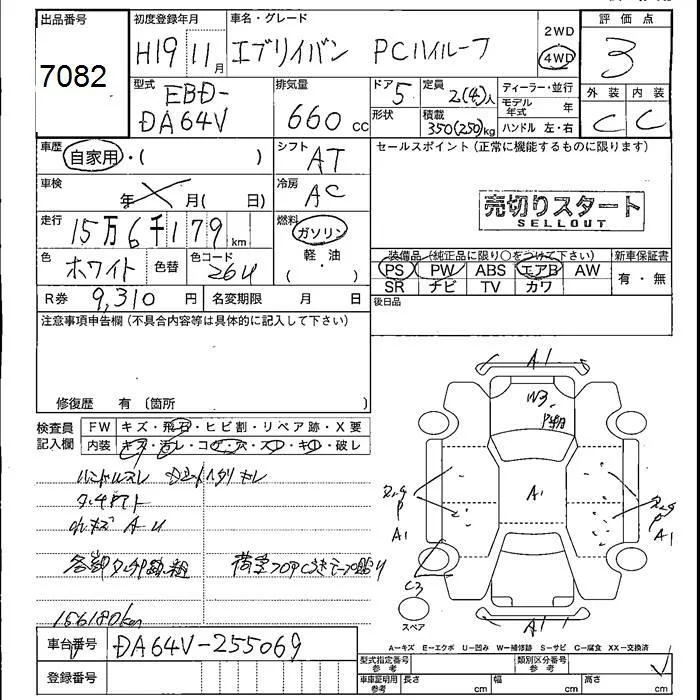 出品番号 初度登録年月 車名・グレード 2WD 評価点
7082 H19 11月 エブリイバン PCハイルーフ 4WD 3
型式 排気量 ドア 定員 ディーラー・並行 外装 内装
EBD-DA64V 660cc 5 2(4)人 モデル年式 年 C C
形状 積載 350(250)kg ハンドル 左・右
車歴 自家用・( ) シフト AT セールスポイント(正常に機能するものに限ります)
車検 年 月( 日) 冷房 AC
売切りスタート
SELLOUT
走行 15万6千179km 燃料 ガソリン
軽油
( )
色 ホワイト 色替 色コード 26U
装備品(純正品に限り○をつけて下さい) 新車保証書
PS PW ABS エアB AW 有・無
SR ナビ TV カワ
R券 9,310円 名変期限 月 日 後日品
注意事項申告欄(不具合内容等は具体的に記入して下さい)
修復歴 有(箇所 )
検査員記入欄 FW キズ・飛石・ヒビ割・リペア跡・X要
内装 キズ・汚レ・コゲ・穴・スレ・キレ・破レ
ハンドルスレ
156180km
A1
W3
A1
A1
A1
C3
A1
スペア
A=キズ E=エクボ U=凹み W=補修跡 S=サビ C=腐食 XX=交換済
車台番号 DA64V-255069
型式指定番号 参考 類別区分番号 参考
登録番号 車庫証明用 参考 長さ cm 幅 cm 高さ cm